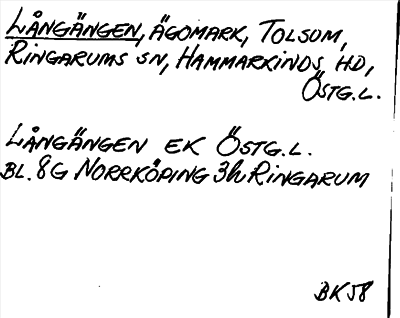 LÅNGÄNGEN, ÄGOMARK, TOLSUM,
RINGARUMS SN, HAMMARKINDS HD,
ÖSTG.L.
LÅNGÄNGEN EK ÖSTG.L.
BL. 8G NORRKÖPING 3h RINGARUM
BK58